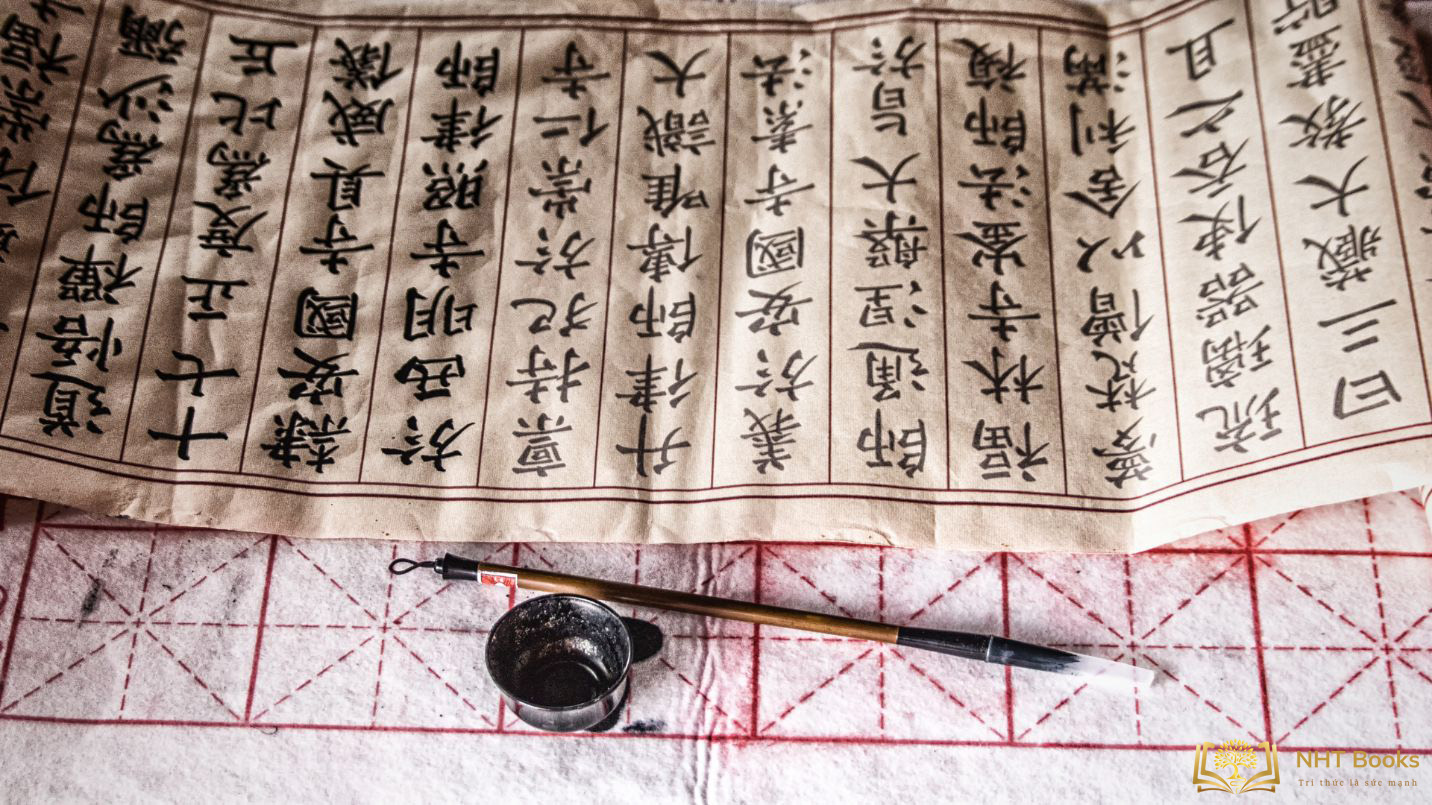 道悟禪師為沙彌
十七正度為比丘
隸安國寺具威儀
於西明寺照律師
稟持犯於崇仁寺
升律師傳唯識大
義於安國寺素法
師通涅槃大旨於
福林寺崟法師復
夢梵僧以舍利滿
琉璃器使吞之且
曰三藏大教盡貯
NHT Books
Tri thức là sức mạnh